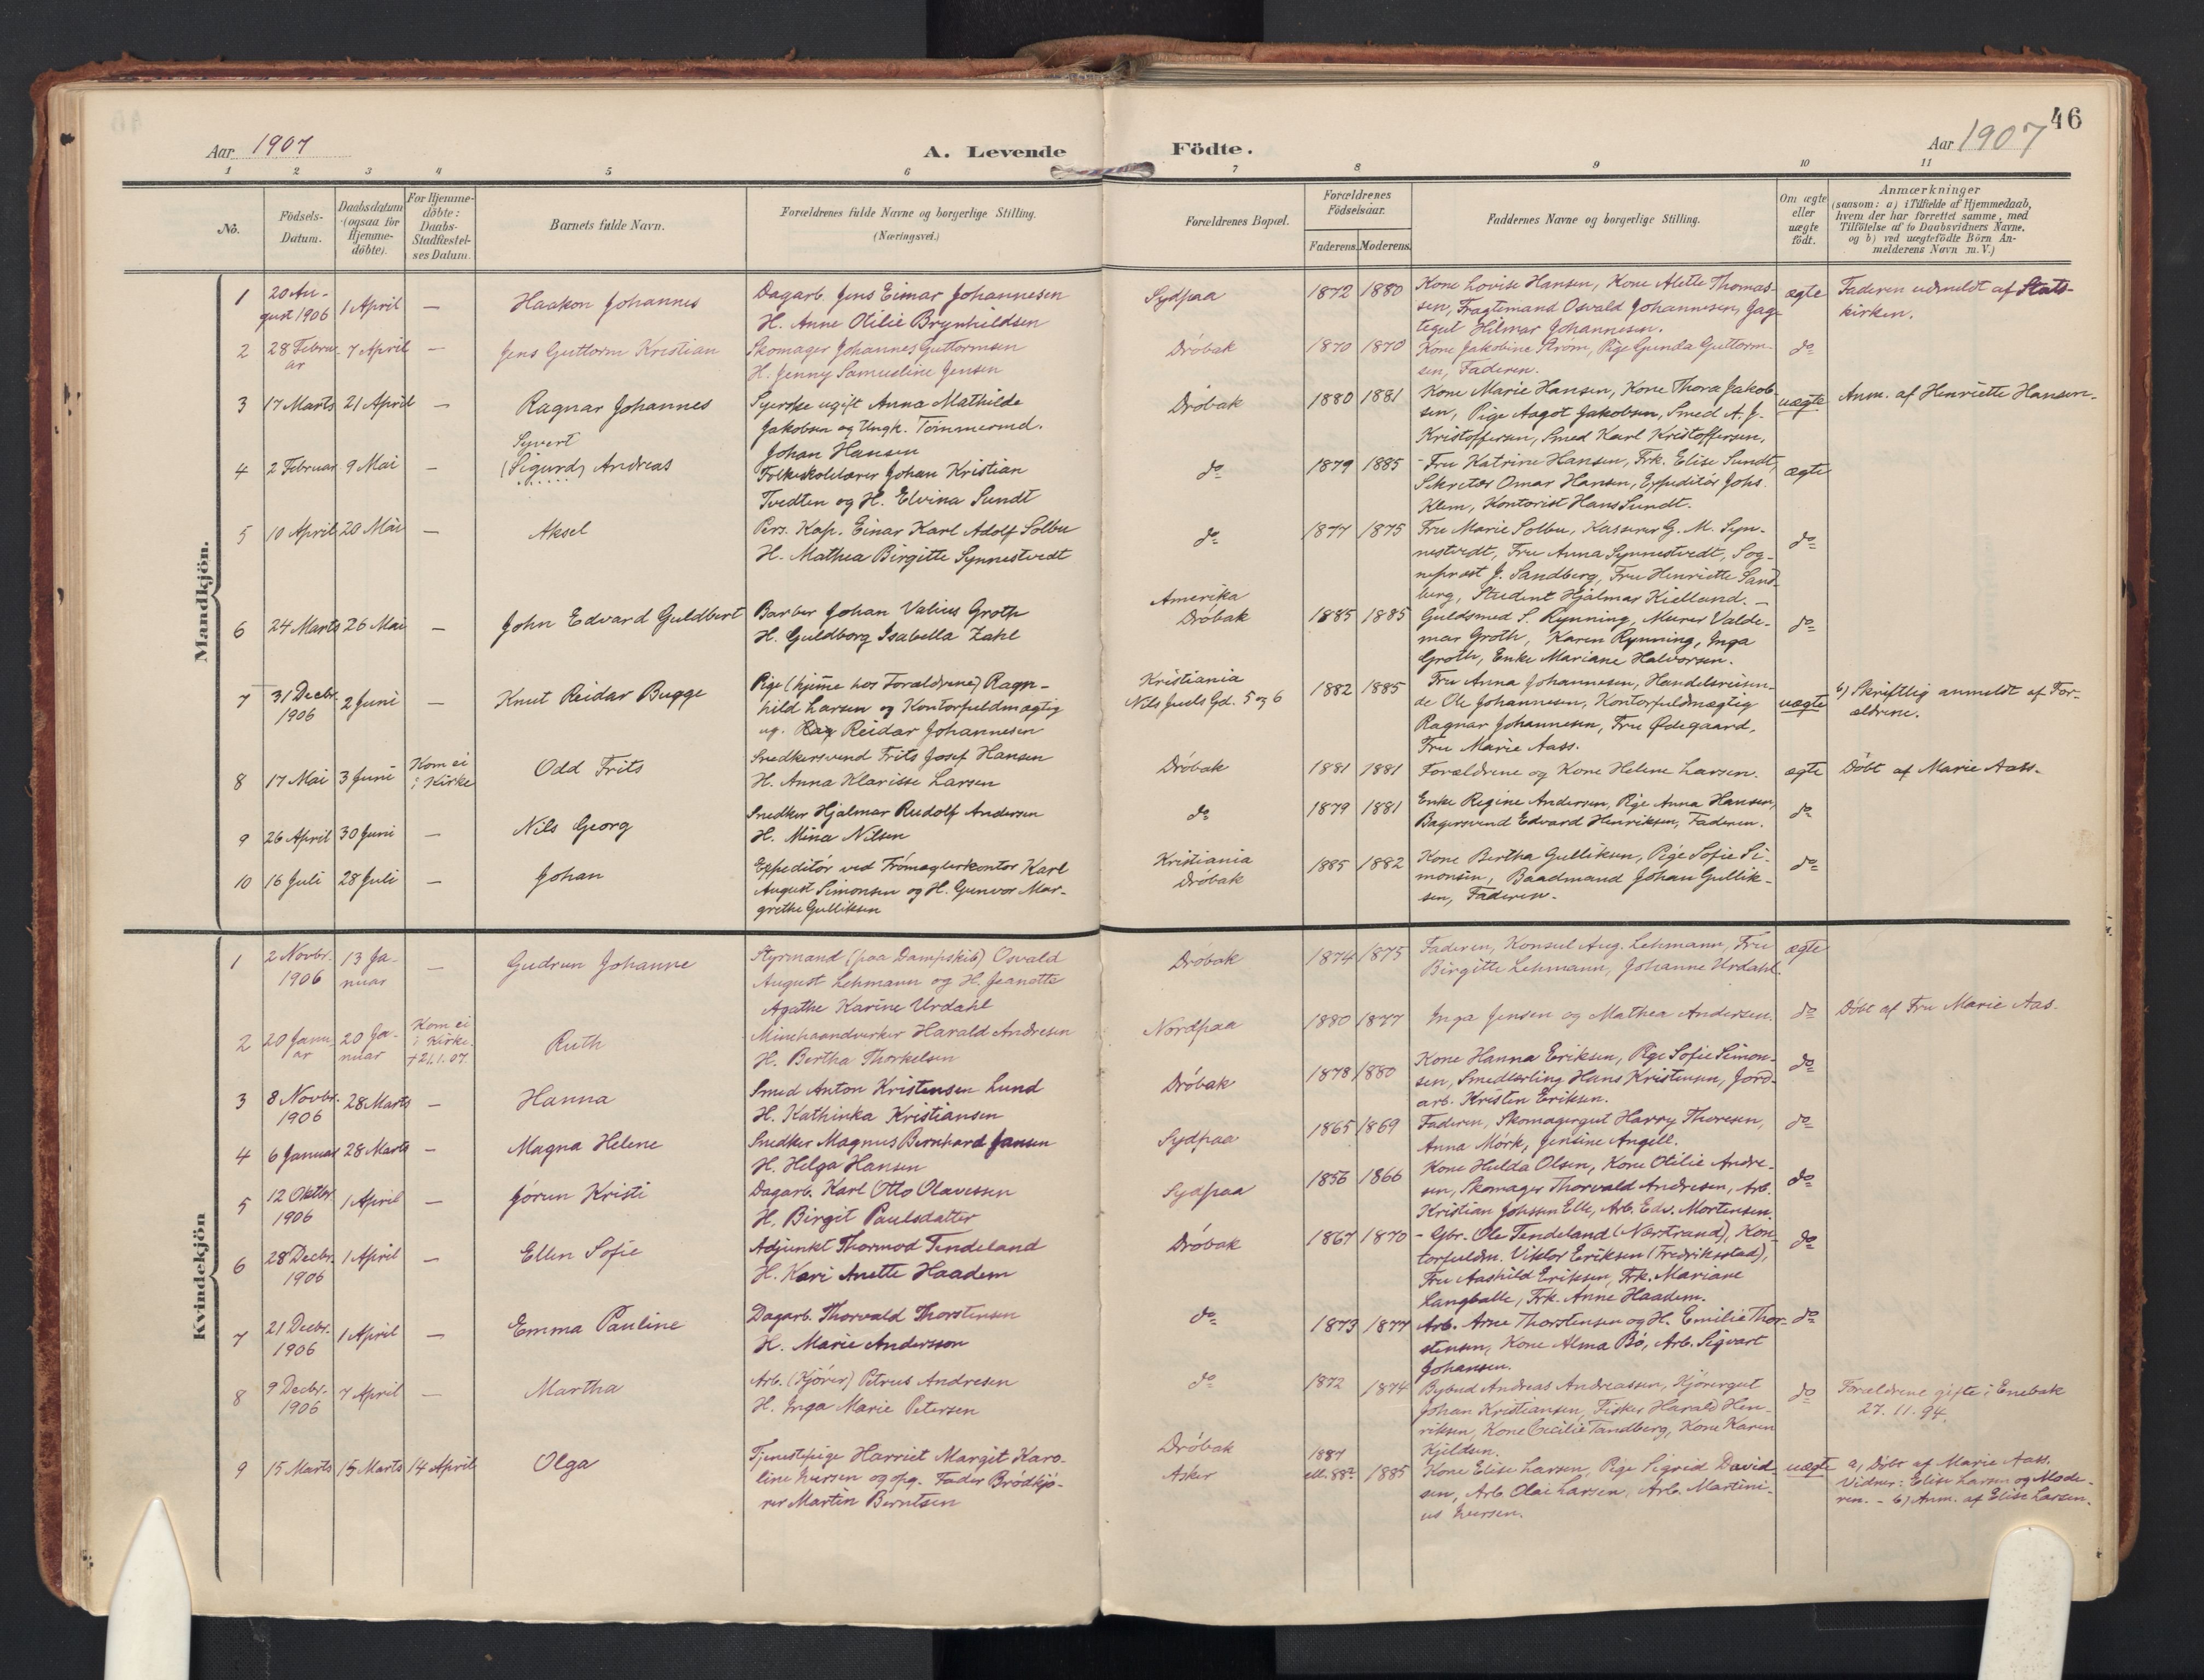 46
Aar 1907
A. Levende
Födte.
Aar 1907
1 2 3 4 5 6 7 8 9 10 11
No.
Födsels-
Datum.
Daabsdatum
(ogsaa for
Hjemme-
döbte).
For Hjemme-
döbte:
Daabs-
Stadfæstel-
ses Datum.
Barnets fulde Navn.
Forældrenes fulde Navne og borgerlige Stilling.
(Næringsvei.)
Forældrenes Bopæl.
Forældrenes
Födselsaar.
Faderens. Moderens.
Faddernes Navne og borgerlige Stilling.
Om ægte
eller
uægte
födt.
Anmærkninger
(saasom: a) i Tilfælde af Hjemmedaab,
hvem der har forrettet samme, med
Tilföielse af to Daabsvidners Navne,
og b) ved uægtefödte Börn An-
melderens Navn m. V.)
Mandkjön.
1
20 Au-
gust 1906
1 April
—
Haakon Johannes
Dagarb. Jens Eimar Johannesen
H. Anne Otilie Brynhildsen
Sydpaa
1872 1880
Kone Lovise Hansen, Kone Alette Thomas-
sen, Fragtemand Osvald Johannesen, Jag-
tegut Hilmar Johannesen.
ægte
Faderen udmeldt af Stats-
kirken.
2
28 Febru-
ar
7 April
—
Jens Guttorm Kristian
Skomager Johannes Guttormsen
H. Jenny Samueline Jensen
Dröbak
1870 1870
Kone Jakobine Ström, Pige Gunda Guttorm-
sen, Faderen.
do
3
17 Marts
21 April
—
Ragnar Johannes
Syerske ugift Anna Mathilde
Jakobsen og Ungk. Tömmermd.
Johan Hansen
Dröbak
1880 1881
Kone Marie Hansen, Kone Thora Jakob-
sen, Pige Aagot Jakobsen, Smed A. J.
Kristoffersen, Smed Karl Kristoffersen.
uægte
Anm. af Henriette Hansen.
4
2 Februar
9 Mai
—
Syvert
(Sigurd) Andreas
Folkeskolelærer Johan Kristian
Tvedten og H. Elvina Sundt
do
1879 1885
- Fru Katrine Hansen, Frk. Elise Sundt,
Sekretær Omar Hansen, Expeditör Johs.
Klem, Kontorist Hans Sundt.
ægte
5
10 April
20 Mai
—
Aksel
Pers. Kap. Einar Karl Adolf Solbu
H. Mathea Birgitte Synnestvedt
do
1877 1875
Fru Marie Solbu, Kasserer G. M. Syn-
nestvedt, Fru Anna Synnestvedt, Sog-
neprest J. Sandberg, Fru Henriette Sand-
berg, Student Hjalmar Kielland. —
do
6
24 Marts
26 Mai
—
John Edvard Guldbert
Barber Johan Valius Groth
H. Guldborg Isabella Zahl
Amerika
Dröbak
1885 1885
Guldsmed S. Rynning, Murer Valde-
mar Groth, Karen Rynning, Inga
Groth, Enke Mariane Halvorsen.
do
7
31 Decbr.
1906
2 Juni
—
Knut Reidar Bugge
Pige (hjeme hos Forældrene) Ragn-
hild Larsen og Kontorfuldmægtig
ug. Rag Reidar Johannesen
Kristiania
Nils Juels Gd. 5 og 6
1882 1885
Fru Anna Johannesen, Handelsreisen-
de Ole Johannesen, Kontorfuldmægtig
Ragnar Johannesen, Fru Ødegaard,
Fru Marie Aass.
uægte
b) Skriftlig anmeldt af For-
ældrene.
8
17 Mai
3 Juni
Kom ei
i Kirke
Odd Frits
Snedkersvend Frits Josef Hansen
H. Anna Klarisse Larsen
Dröbak
1881 1881
Forældrene og Kone Helene Larsen.
ægte
Döbt af Marie Aass.
9
26 April
30 Juni
—
Nils Georg
Snedker Hjalmar Rudolf Andersen
H. Mina Nilsen
do
1879 1881
Enke Regine Andersen, Pige Anna Hansen,
Bagersvend Edvard Henriksen, Faderen.
do
10
16 Juli
28 Juli
—
Johan
Expeditör ved Frömæglerkontor Karl
August Simonsen og H. Gunvor Mar-
grethe Gulliksen
Kristiania
Dröbak
1885 1882
Kone Bertha Gulliksen, Pige Sofie Si-
monsen, Baadmand Johan Gullik-
sen, Faderen.
do
Kvindekjön
1
2 Novbr.
1906
13 Ja-
nuar
—
Gudrun Johanne
Styrmand (paa Dampskib) Osvald
August Lehmann og H. Jeanette
Agathe Karine Urdahl
Dröbak
1874 1875
Faderen, Konsul Aug. Lehmann, Fru
Birgitte Lehmann, Johanne Urdahl.
ægte
2
20 Janu-
ar
20 Ja-
nuar
Kom ei
i Kirke.
+ 21.1.07
Ruth
Minehaandverker Harald Andresen
H. Bertha Thorkelsen
Nordpaa
1880 1877
Inga Jensen og Mathea Andersen.
do
Döbt af Fru Marie Aas.
3
8 Novbr.
1906
28 Marts
—
Hanna
Smed Anton Kristensen Lund
H. Kathinka Kristiansen
Dröbak
1878 1880
Kone Hanna Eriksen, Pige Sofie Simon-
sen, Smedlærling Hans Kristensen, Jord-
arb. Kristen Eriksen.
do
4
6 Januar
28 Marts
—
Magna Helene
Snedker Magnus Bernhard Jansen
H. Helga Hansen
Sydpaa
1865 1869
Faderen, Skomagergut Harry Thoresen,
Anna Mörk, Jensine Angell.
do
5
12 Oktbr
1906
1 April
—
Jórun Kristi
Dagarb. Karl Otto Olavessen
H. Birgit Paulsdatter
Sydpaa
1856 1866
Kone Hulda Olsen, Kone Otilie Andre-
sen, Skomager Thorvald Andresen, Arb.
Kristian Johssen Elle, Arb. Edv. Mortensen.
do
6
28 Decbr.
1906
1 April
—
Ellen Sofie
Adjunkt Thormod Tendeland
H. Kari Anette Haadem
Dröbak
1867 1870
- Gbr. Ole Tendeland (Nærstrand), Kon-
torfuldm. Viktor Eriksen (Fredriksstad),
Fru Aashild Eriksen, Frk. Mariane
Langballe, Frk. Anne Haadem.
do
7
21 Decbr.
1906
1 April
—
Emma Pauline
Dagarb. Thorvald Thorstensen
H. Marie Andersson
do
1873 1877
Arb. Arne Thorstensen og H. Emilie Thor-
stensen, Kone Alma Bö, Arb. Sigvart
Johansen.
do
8
9 Decbr.
1906
7 April
—
Martha
Arb. (Kjörer) Petrus Andresen
H. Inga Marie Petersen
do
1872 1874
Bybud Andreas Andreassen, Kjörergut
Johan Kristiansen, Fisker Harald Hen-
riksen, Kone Cecilie Tandberg, Kone Karen
Kjeldsen.
do
Forældrene gifte i Enebak
27.11.94.
9
15 Marts
15 Marts
14 April
Olga
Tjenestepige Harriet Margit Karo-
line Iversen og opg. Fader Brödkjö-
rer Martin Berntsen
Dröbak
Asker
1887
ell. 88? 1885
Kone Elise Larsen, Pige Sigrid David-
sen, Arb. Olai Larsen, Arb. Martini-
us Iversen.
uægte
a) Döbt af Marie Aass.
Vidner: Elise Larsen og Mode-
ren. - b) Anm. af Elise Larsen.